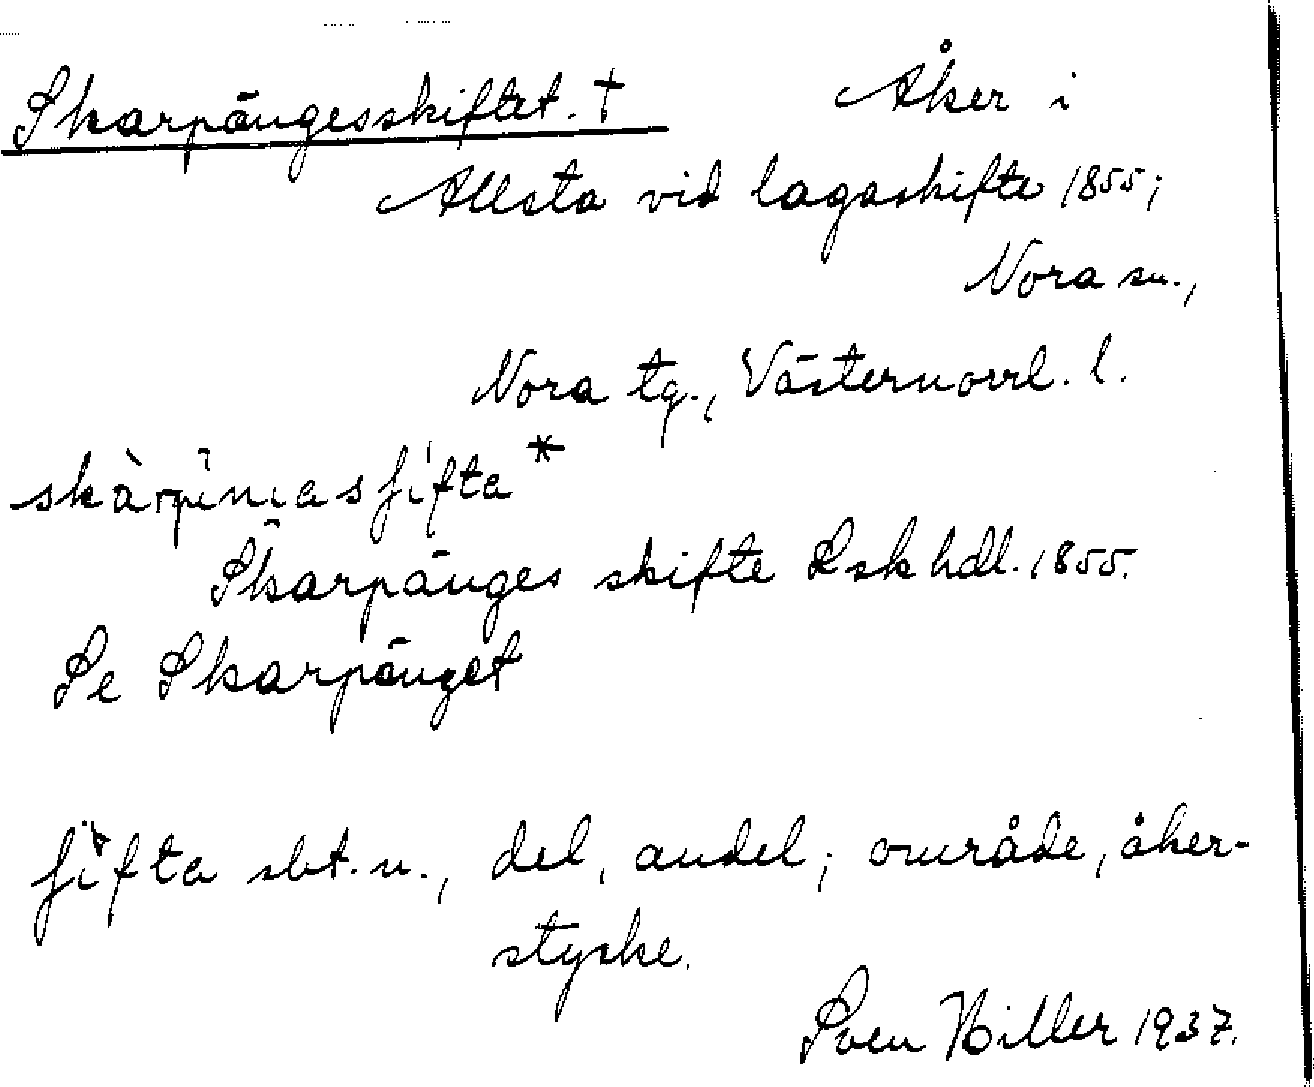 Skarpängesskiftet. † Åker i
Allsta vid lagaskifte 1855;
Nora sn.,
Nora tg., Västernorrl. l.
Skarpänges skifte Lskhdl. 1855.
Se Skarpänget
sbt. n., del, andel; område, åker-
stycke.
Sven Hiller 1937.